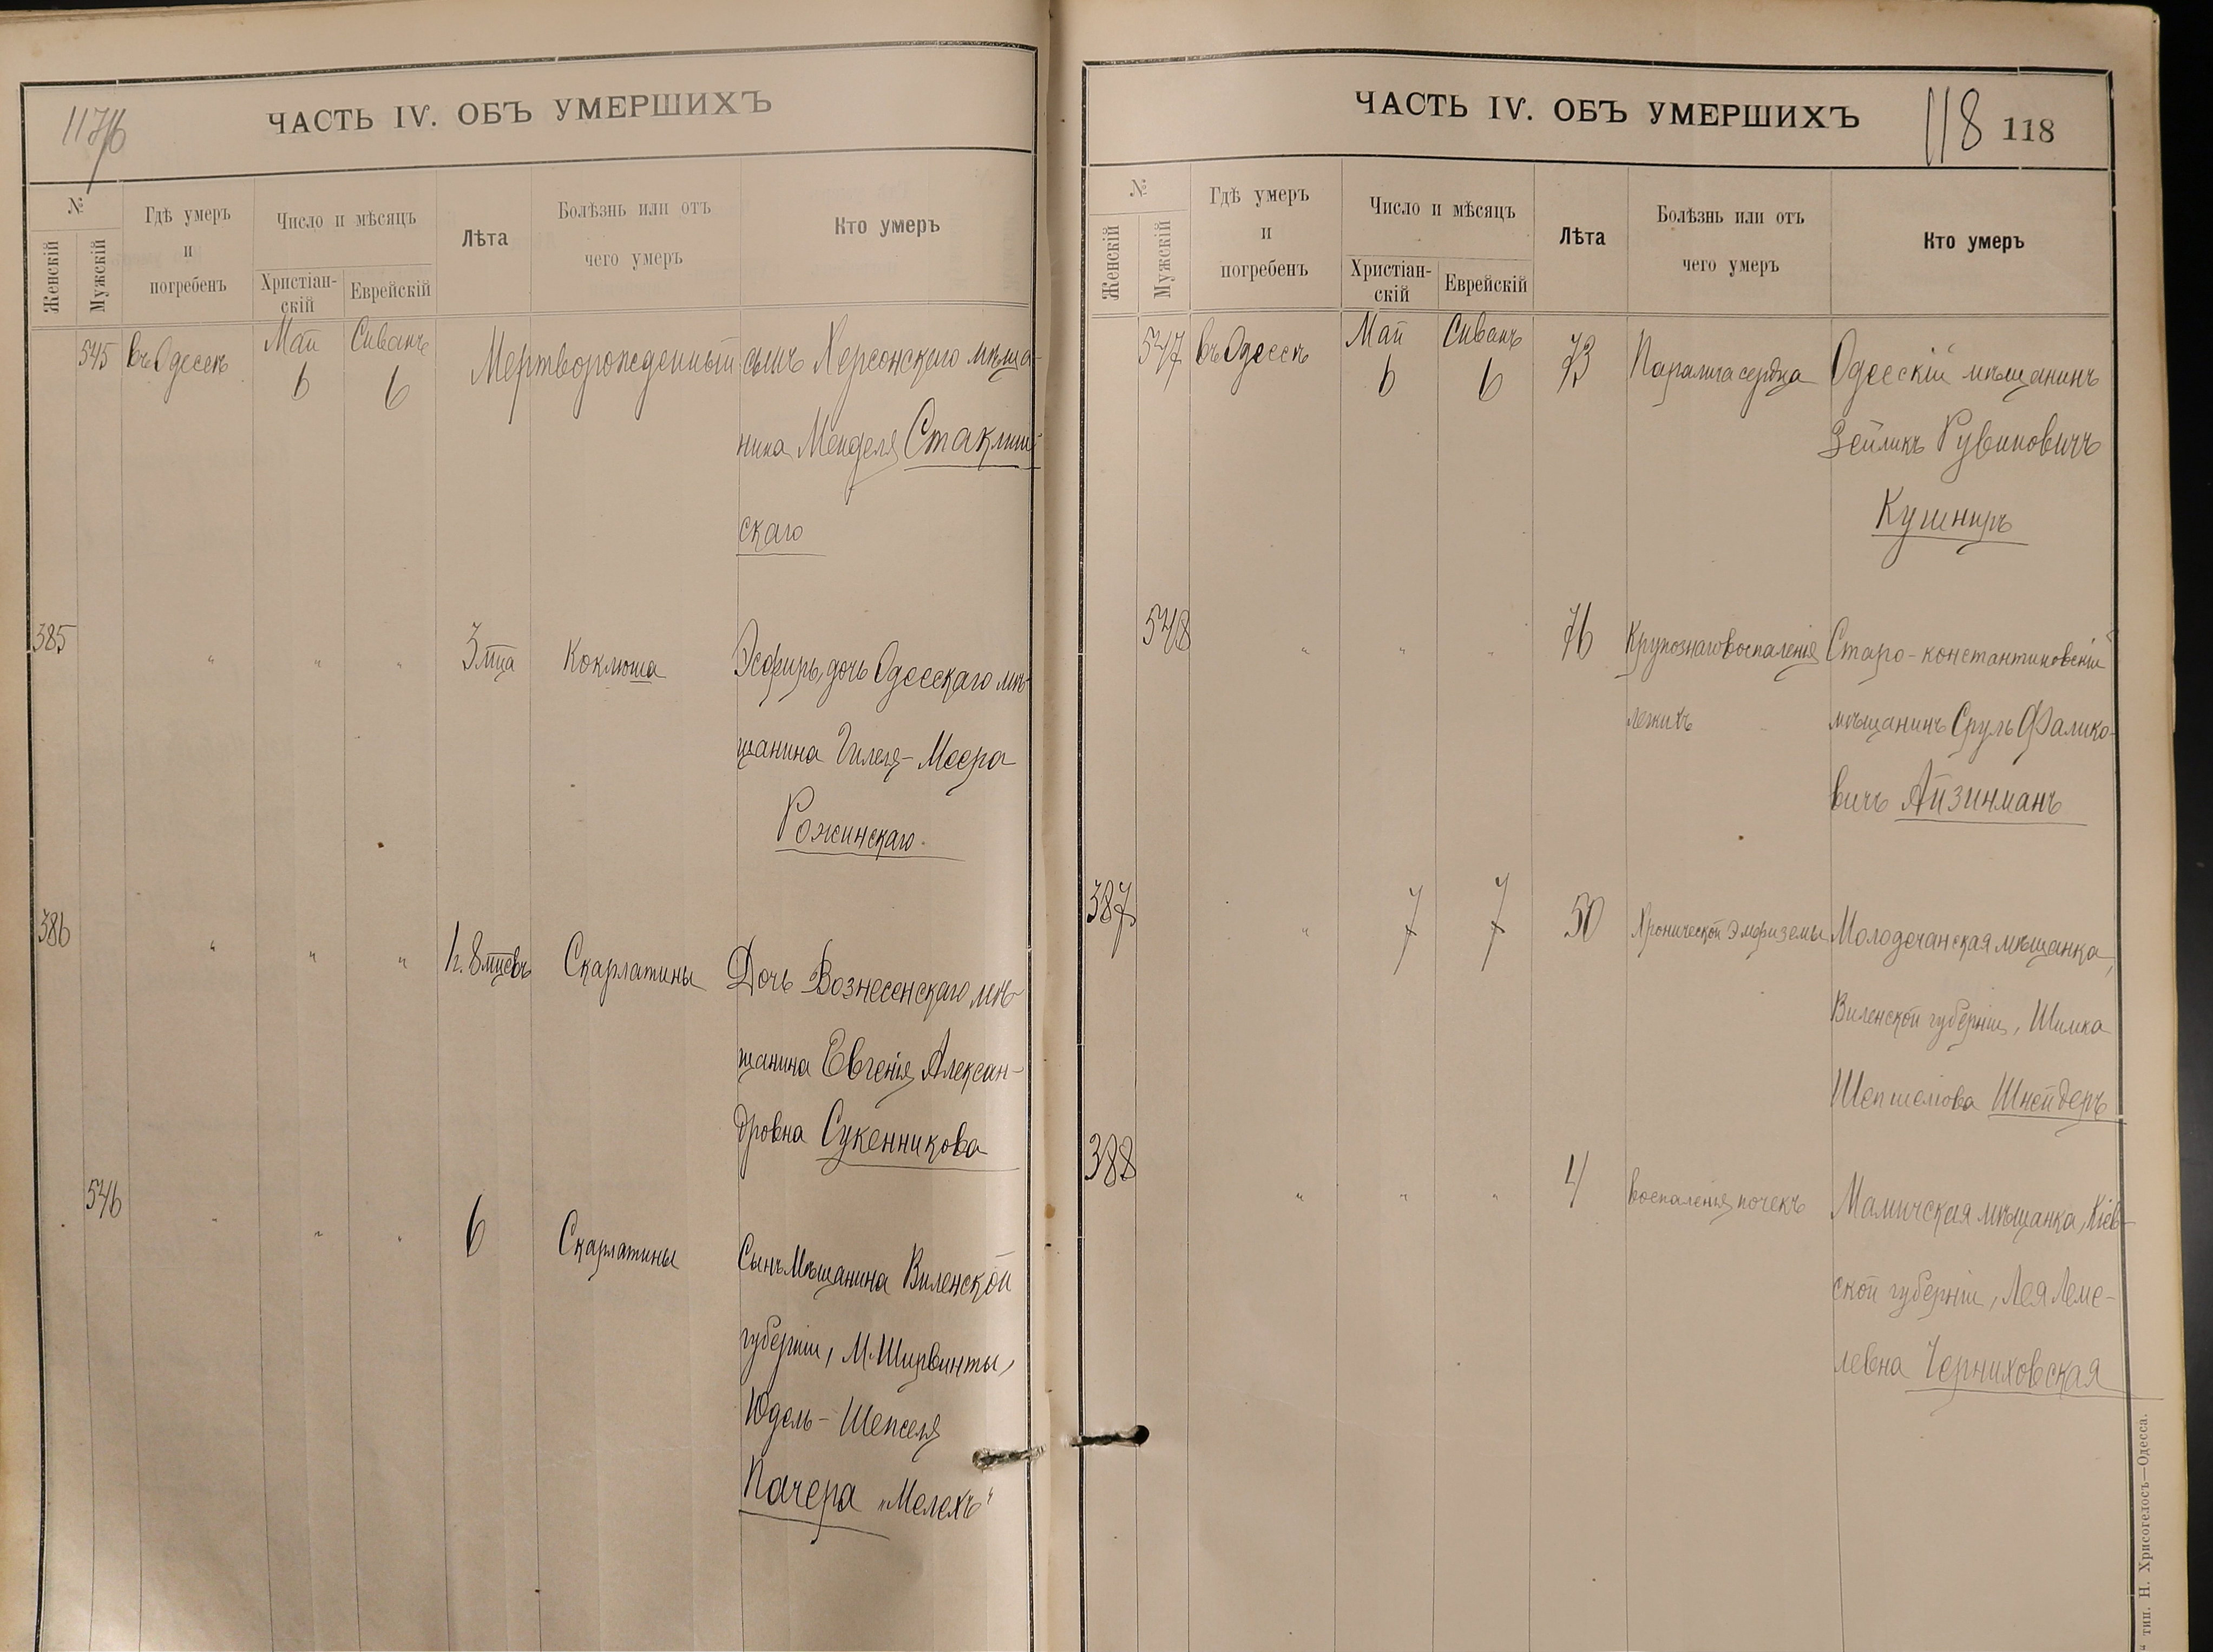 117об
ЧАСТЬ IV. ОБЪ УМЕРШИХЪ
№
Женскій
Мужскій
Гдѣ умеръ
и
погребенъ
Число и мѣсяцъ
Христіан-
скій
Еврейскій
Лѣта
Болѣзнь или отъ
чего умеръ
Кто умеръ
545 въ Одессѣ Май Сиванъ Мертворожденный сынъ Херсонскаго мѣща-
6 6
нина Менделя Стаклиш-
скаго
385 " " " 3 м̃ца Коклюша Эсфирь, дочь Одесскаго мѣ-
щанина Гилеля-Меера
Рожинскаго.
386 " " " 1 г. 8 мцевъ Скарлатины Дочь Вознесенскаго мѣ-
щанина Евгенія Алексан-
дровна Сукенникова
546 " " " 6 Скарлатины Сынъ Мѣщанина Виленской
губерніи, М. Ширвинты,
Юдель-Шепселя
Пачера „Мелехъ"
ЧАСТЬ IV. ОБЪ УМЕРШИХЪ
118 118
№
Женскій
Мужскій
Гдѣ умеръ
и
погребенъ
Число и мѣсяцъ
Христіан-
скій
Еврейскій
Лѣта
Болѣзнь или отъ
чего умеръ
Кто умеръ
547 въ Одессѣ Май Сиванъ 73 Паралича сердца Одесскій мѣщанинъ
6 6
Зейликъ Рувиновичъ
Кушниръ
548 " " " 76 Крупознаго воспаленія Старо-константиновскій
легкихъ мѣщанинъ Сруль Фалико-
вичъ Айзинманъ
387 " 7 7 50 Хронической Эмфиземы Молодечанская мѣщанка,
Виленской губерніи, Шимка
Шепшелова Шнейдеръ
388 " " " 4 воспаленія почекъ мѣщанка, Кіев-
ской губерніи, Лея Леме-
левна Черниховская
" тип. Н. Хрисогелосъ—Одесса.